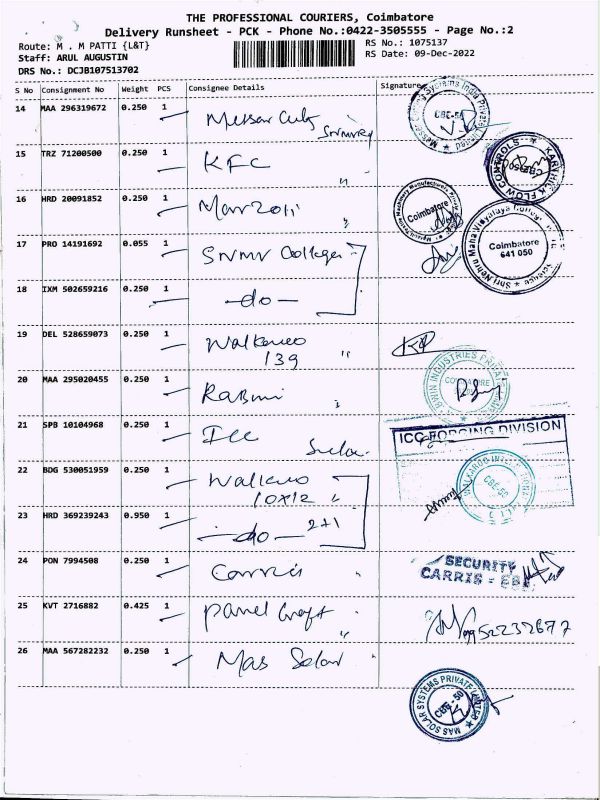 THE PROFESSIONAL COURIERS, Coimbatore
Delivery Runsheet - PCK - Phone No.:0422-3505555 - Page No.:2
Route: M . M PATTI {L&T}
RS No.: 1075137
Staff: ARUL AUGUSTIN
RS Date: 09-Dec-2022
DRS No.: DCJB107513702
S No Consignment No Weight PCS Consignee Details Signature
14 MAA 296319672 0.250 1
15 TRZ 71200500 0.250 1 KFC "
16 HRD 20091852 0.250 1
Coimbatore
17 PRO 14191692 0.055 1 SNMV College
Coimbatore
641 050
18 IXM 502659216 0.250 1 -do-
19 DEL 528659073 0.250 1 Walkaroo
139 "
20 MAA 295020455 0.250 1
21 SPB 10104968 0.250 1 ICC
Sulur
ICC FORGING DIVISION
22 BDG 530051959 0.250 1 Walkaroo
10x12 "
CBE-50
23 HRD 369239243 0.950 1 -do- 2+1
24 PON 7994508 0.250 1 Carris "
SECURITY
CARRIS - CBE
25 KVT 2716882 0.425 1 Panel Craft "
9952232677
26 MAA 567282232 0.250 1 Mas Solar "
MAS SOLAR SYSTEMS PRIVATE LIMITED
CBE - 50